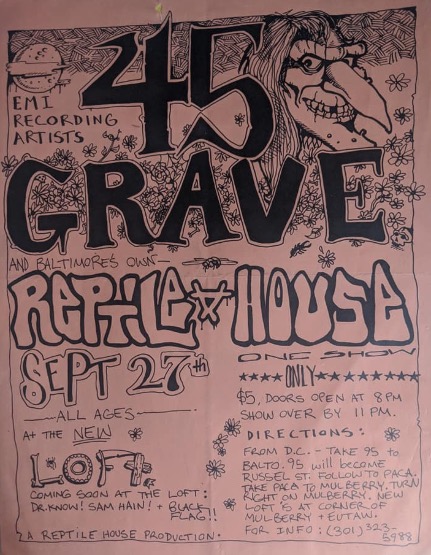 45
GRAVE
EMI
RECORDING
ARTISTS
AND BALTIMORE'S OWN—
REPTILE HOUSE
ONE SHOW
ONLY
SEPT 27th
—ALL AGES—
At the NEW
LOFT
COMING SOON AT THE LOFT:
DR.KNOW! SAM HAIN! + BLACK
FLAG!!
A REPTILE HOUSE PRODUCTION.
$5, DOORS OPEN AT 8PM
SHOW OVER BY 11 PM.
DIRECTIONS:
FROM D.C. - TAKE 95 to
BALTO. 95 will BECOME
RUSSEL ST. FOLLOW TO PACA.
TAKE PACA TO MULBERRY. TURN
RIGHT ON MULBERRY. NEW
LOFT IS AT CORNER OF
MULBERRY + EUTAW.
FOR INFO: (301) 323-
5988